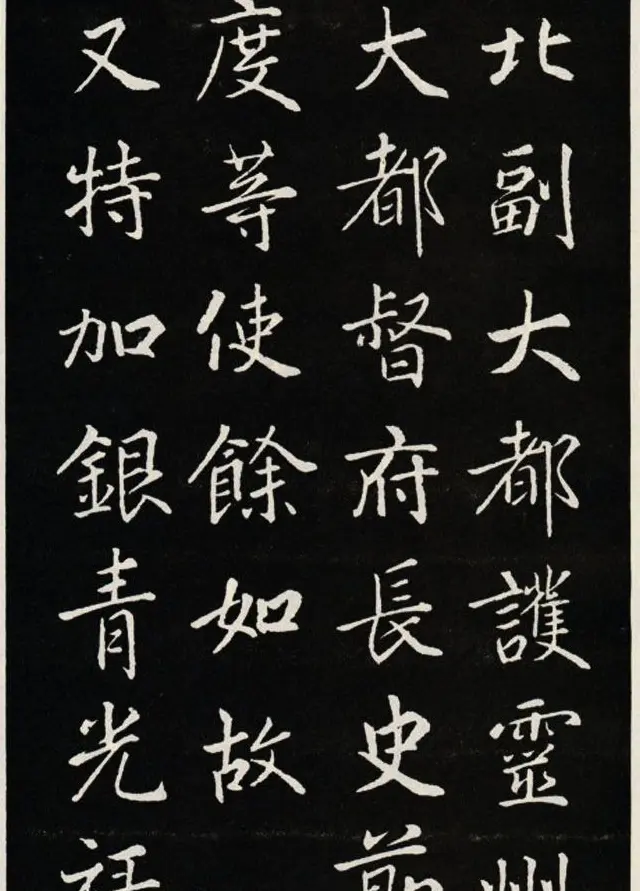 北副大都護靈州
大都督府長史節
度等使餘如故
又特加銀青光